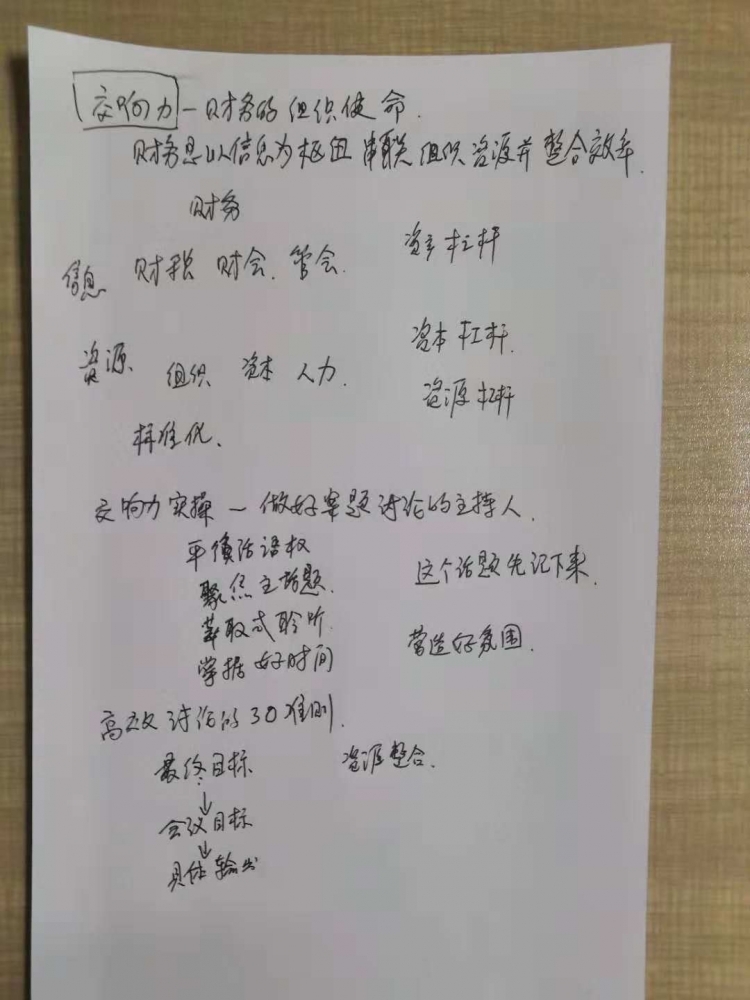 交响力 — 财务的组织使命.
财务是以信息为枢纽 串联 组织 资源并 整合效率.
财务
信息 财税 财会. 管会. 资产杠杆
资源 组织 资本 人力. 资本杠杆.
资源杠杆
标准化.
交响力实操 — 做好掌题讨论的主持人.
平衡话语权
聚焦主话题. 这个话题先记下来.
萃取式聆听.
掌握好时间 营造好氛围.
高效讨论的3O准则.
最终目标 资源整合.
↓
会议目标
↓
具体输出